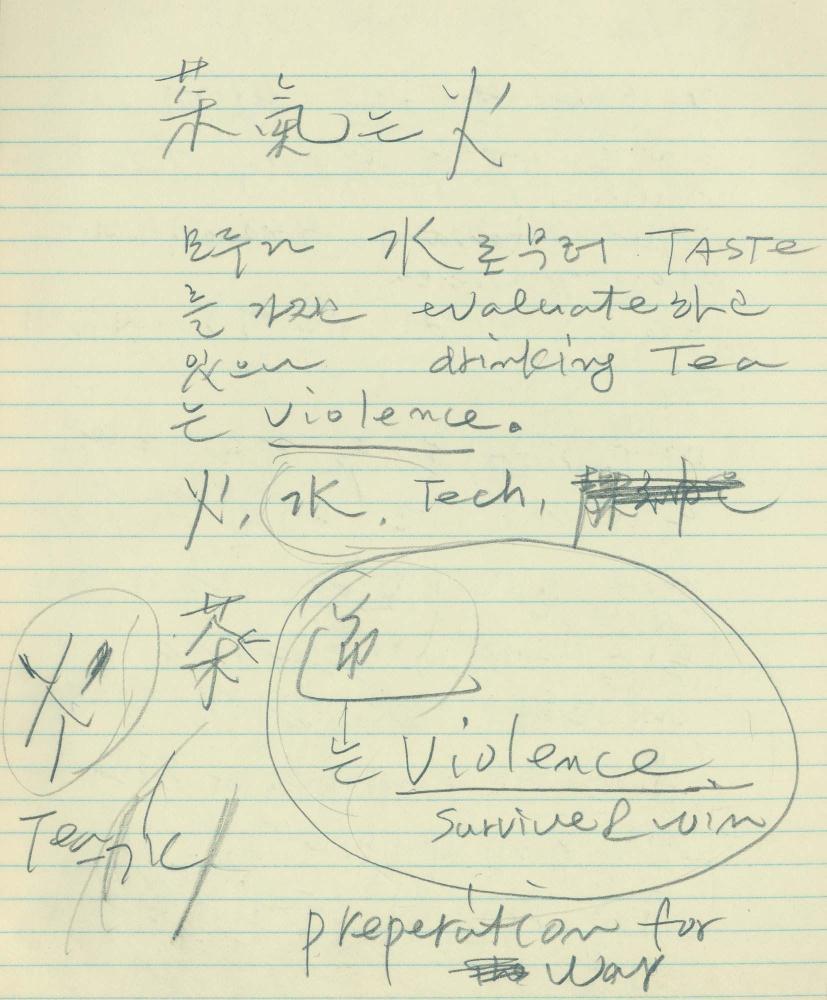 茶氣는 火
모두가 水로부터 TASTE
를 가지고 evaluate하고
있으나 drinking Tea
는 violence.
火, 水, Tech,
火 茶 道
는 Violence
Survive & win
Tea 水
preperation for
War